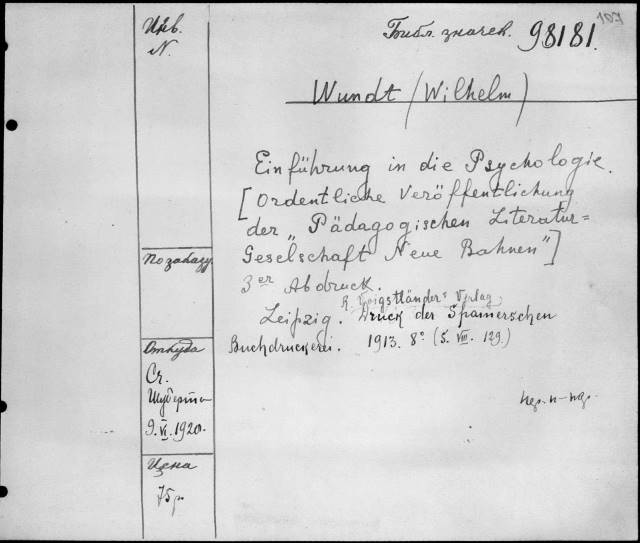 107
Инв.
N.
Библ. значек. 98181.
Wundt (Wilhelm)
Einführung in die Psychologie.
[Ordentliche Veröffentlichung
der „Pädagogischen Literatur=
Geselschaft Neue Bahnen"]
3er Abdruck.
R. Voigtländers Verlag
Leipzig. Druck der Spamerschen
Buchdruckerei. 1913. 8° (S. VIII. 129.)
По заказу.
Откуда
Ст.
Шуберта
9.VI.1920.
Цена
75р